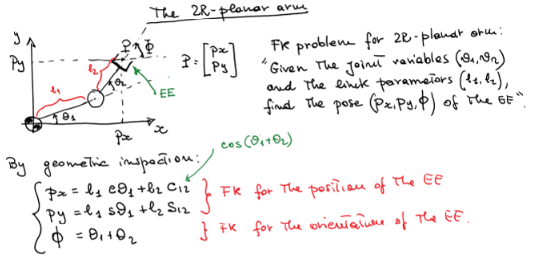 The 2R-planar arm
y
Py
P
ϕ
l2
θ2
l1
EE
θ1
Px
x
P = [Px Py]
FK problem for 2R-planar arm:
"Given the joint variables (θ1,θ2)
and the link parameters (l1,l2),
find the pose (Px,Py,ϕ) of the EE".
cos(θ1+θ2)
By geometric inspection:
Px = l1 cθ1 + l2 C12
Py = l1 sθ1 + l2 S12
} FK for the position of the EE
ϕ = θ1+θ2
} FK for the orientation of the EE.